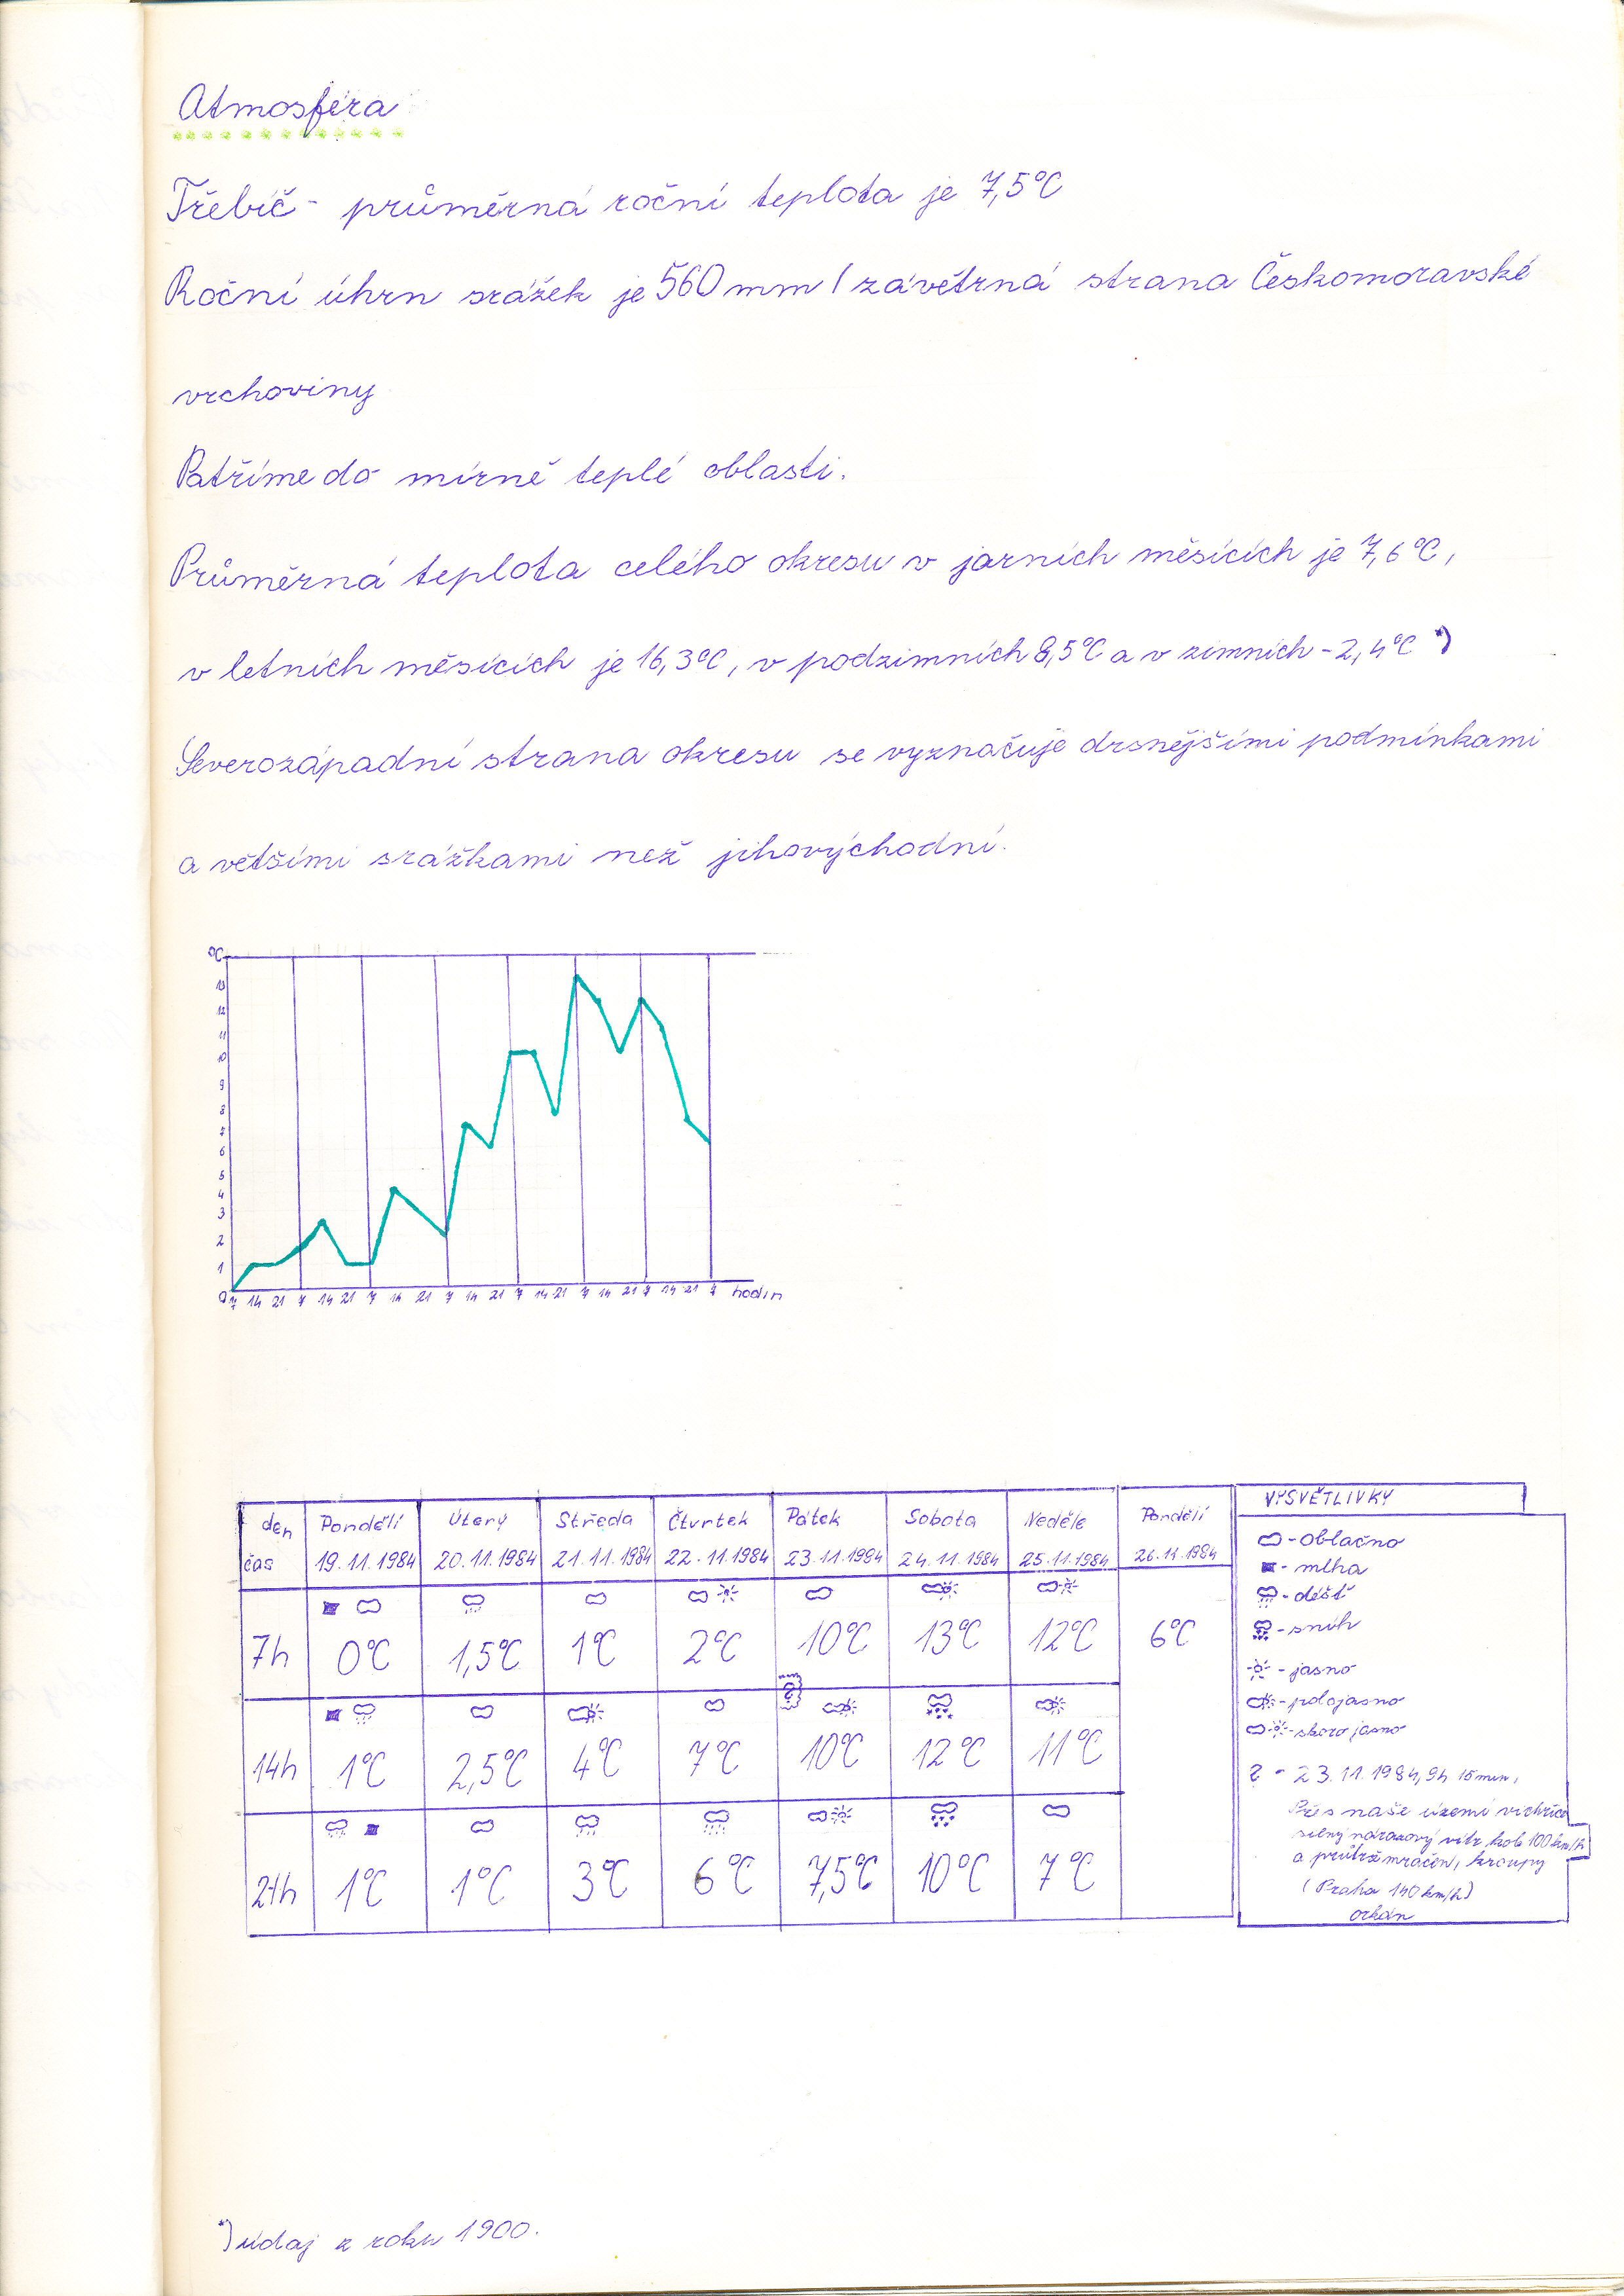 Atmosféra
Třebíč - průměrná roční teplota je 7,5°C
Roční úhrn srážek je 560 mm / závětrná strana Českomoravské
vrchoviny
Patříme do mírně teplé oblasti.
Průměrná teplota celého okresu v jarních měsících je 7,6°C,
v letních měsících je 16,3°C, v podzimních 8,5°C a v zimních -2,4°C *)
Severozápadní strana okresu se vyznačuje drsnějšími podmínkami
a většími srážkami než jihovýchodní.
°C
13
12
11
10
9
8
7
6
5
4
3
2
1
0
7 14 21 7 14 21 7 14 21 7 14 21 7 14 21 7 14 21 7 14 21 7 hodin
den Pondělí Úterý Středa Čtvrtek Pátek Sobota Neděle Pondělí
čas 19.11.1984 20.11.1984 21.11.1984 22.11.1984 23.11.1984 24.11.1984 25.11.1984 26.11.1984
7h 0°C 1,5°C 1°C 2°C 10°C 13°C 12°C 6°C
?
14h 1°C 2,5°C 4°C 7°C 10°C 12°C 11°C
21h 1°C 1°C 3°C 6°C 7,5°C 10°C 7°C
VYSVĚTLIVKY
- oblačno
- mlha
- déšť
- sníh
- jasno
- polojasno
- skoro jasno
? - 23.11.1984, 9h 15 min,
Přes naše území vichřice
silný nárazový vítr kol 100 km/h
a průtrž mračen, kroupy
(Praha 140 km/h)
orkán
*) údaj z roku 1900.